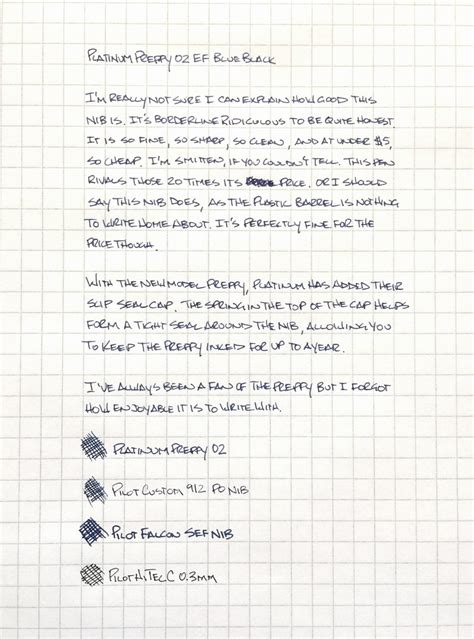 PLATINUM PREPPY 02 EF BLUE BLACK
I'M REALLY NOT SURE I CAN EXPLAIN HOW GOOD THIS
NIB IS. IT'S BORDERLINE RIDICULOUS TO BE QUITE HONEST.
IT IS SO FINE, SO SHARP, SO CLEAN, AND AT UNDER $5,
SO CHEAP. I'M SMITTEN, IF YOU COULDN'T TELL. THIS PEN
RIVALS THOSE 20 TIMES ITS PRICE. OR I SHOULD
SAY THIS NIB DOES, AS THE PLASTIC BARREL IS NOTHING
TO WRITE HOME ABOUT. IT'S PERFECTLY FINE FOR THE
PRICE THOUGH.
WITH THE NEW MODEL PREPPY, PLATINUM HAS ADDED THEIR
SLIP SEAL CAP. THE SPRING IN THE TOP OF THE CAP HELPS
FORM A TIGHT SEAL AROUND THE NIB, ALLOWING YOU
TO KEEP THE PREPPY INKED FOR UP TO A YEAR.
I'VE ALWAYS BEEN A FAN OF THE PREPPY BUT I FORGOT
HOW ENJOYABLE IT IS TO WRITE WITH.
PLATINUM PREPPY 02
PILOT CUSTOM 912 PO NIB
PILOT FALCON SEF NIB
PILOT HI TEC C 0.3MM